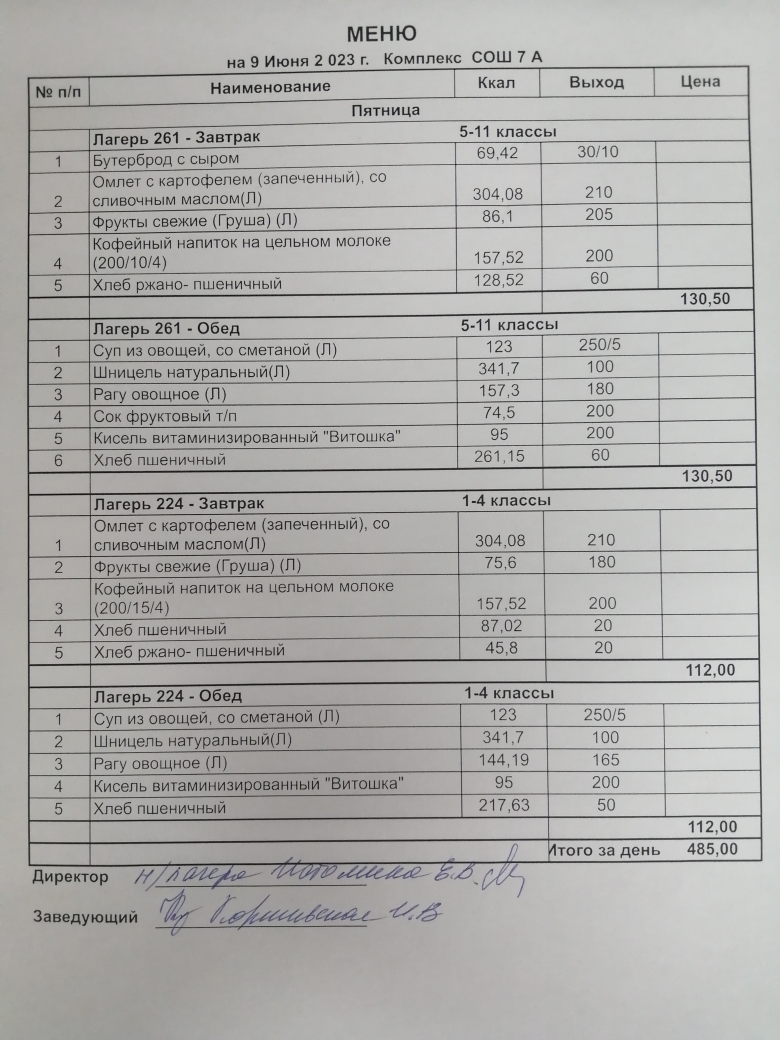 МЕНЮ
на 9 Июня 2 023 г. Комплекс СОШ 7 А
№ п/п Наименование Ккал Выход Цена
Пятница
Лагерь 261 - Завтрак 5-11 классы
1 Бутерброд с сыром 69,42 30/10
Омлет с картофелем (запеченный), со
2 сливочным маслом(Л) 304,08 210
3 Фрукты свежие (Груша) (Л) 86,1 205
Кофейный напиток на цельном молоке
4 (200/10/4) 157,52 200
5 Хлеб ржано- пшеничный 128,52 60
130,50
Лагерь 261 - Обед 5-11 классы
1 Суп из овощей, со сметаной (Л) 123 250/5
2 Шницель натуральный(Л) 341,7 100
3 Рагу овощное (Л) 157,3 180
4 Сок фруктовый т/п 74,5 200
5 Кисель витаминизированный "Витошка" 95 200
6 Хлеб пшеничный 261,15 60
130,50
Лагерь 224 - Завтрак 1-4 классы
Омлет с картофелем (запеченный), со
1 сливочным маслом(Л) 304,08 210
2 Фрукты свежие (Груша) (Л) 75,6 180
Кофейный напиток на цельном молоке
3 (200/15/4) 157,52 200
4 Хлеб пшеничный 87,02 20
5 Хлеб ржано- пшеничный 45,8 20
112,00
Лагерь 224 - Обед 1-4 классы
1 Суп из овощей, со сметаной (Л) 123 250/5
2 Шницель натуральный(Л) 341,7 100
3 Рагу овощное (Л) 144,19 165
4 Кисель витаминизированный "Витошка" 95 200
5 Хлеб пшеничный 217,63 50
112,00
Итого за день 485,00
Директор н/лагеря Потомина Е.В.
Заведующий И.В